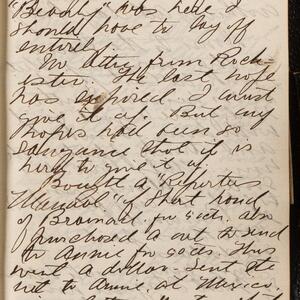 Beauty" was here I
should have to lay off
entirely.
No letter from Roch-
ester. The last hope
has expired. I must
give it up. But my
hopes had been so
sanguine that it is
hard to give it up.
Bought a "Reporters
Manual" of Short hand
of Brainard for 50cts. also
purchased a cut to send
to Annie for 50cts. Thus
went a dollar. Sent the
cut to Annie, at Mexico.